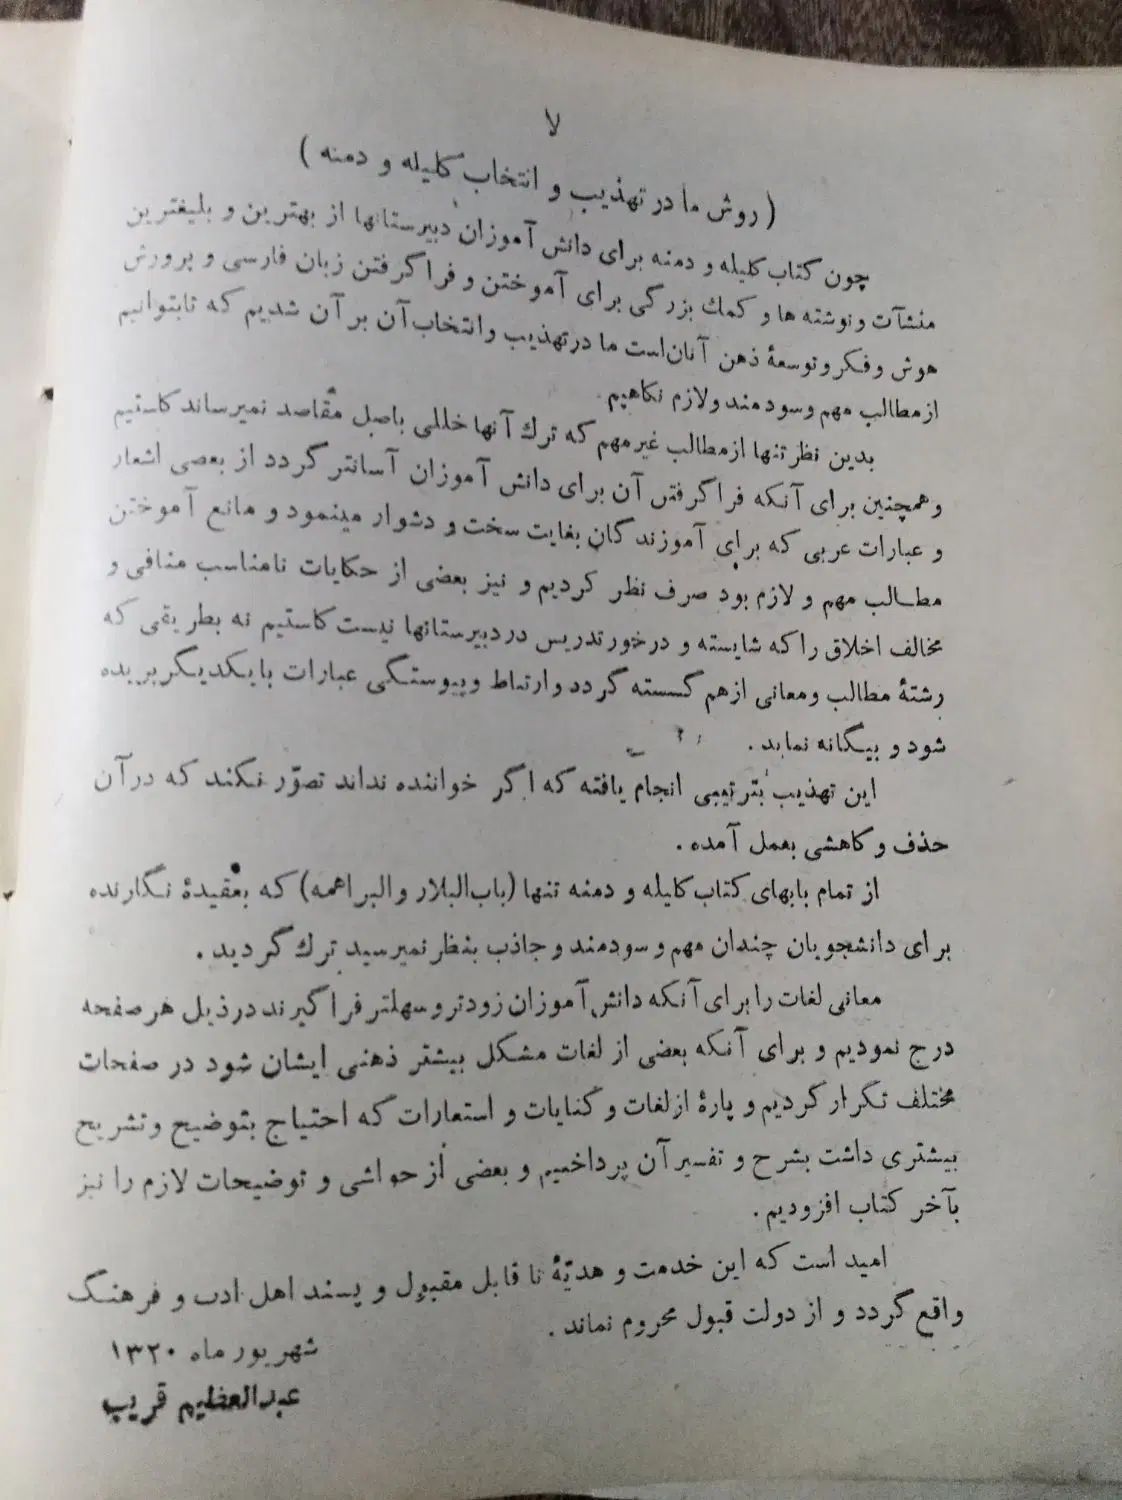 لا
( روش ما در تهذیب و انتخاب کلیله و دمنه )
چون کتاب کلیله و دمنه برای دانش آموزان دبیرستانها از بهترین و بلیغترین
منشآت و نوشته ها و کمك بزرگی برای آموختن و فرا گرفتن زبان فارسی و پرورش
هوش و فکر و توسعهٔ ذهن آنان است ما در تهذیب و انتخاب آن بر آن شدیم که تا بتوانیم
از مطالب مهم و سودمند و لازم نکاهیم
بدین نظر تنها از مطالب غیر مهم که ترك آنها خللی باصل مقاصد نمیرساند کاستیم
و همچنین برای آنکه فرا گرفتن آن برای دانش آموزان آسانتر گردد از بعضی اشعار
و عبارات عربی که برای آموزندگان بغایت سخت و دشوار مینمود و مانع آموختن
مطالب مهم و لازم بود صرف نظر کردیم و نیز بعضی از حکایات نامناسب منافی و
مخالف اخلاق را که شایسته و درخور تدریس در دبیرستانها نیست کاستیم نه بطریقی که
رشتهٔ مطالب و معانی از هم گسسته گردد و ارتباط و پیوستگی عبارات با یکدیگر بریده
شود و بیگانه نماید .
این تهذیب بترتیبی انجام یافته که اگر خواننده نداند تصوّر نکند که در آن
حذف و کاهشی بعمل آمده .
از تمام بابهای کتاب کلیله و دمنه تنها (باب البلار والبراهمه) که بعقیدهٔ نگارنده
برای دانشجویان چندان مهم و سودمند و جاذب بنظر نمیرسید ترك گردید .
معانی لغات را برای آنکه دانش آموزان زودتر و سهلتر فرا گیرند در ذیل هر صفحه
درج نمودیم و برای آنکه بعضی از لغات مشکل بیشتر ذهنی ایشان شود در صفحات
مختلف تکرار کردیم و پارهٔ از لغات و کنایات و استعارات که احتیاج بتوضیح و تشریح
بیشتری داشت بشرح و تفسیر آن پرداختیم و بعضی از حواشی و توضیحات لازم را نیز
بآخر کتاب افزودیم .
امید است که این خدمت و هدیّهٔ نا قابل مقبول و پسند اهل ادب و فرهنگ
واقع گردد و از دولت قبول محروم نماند .
شهریور ماه ۱۳۲۰
عبدالعظیم قریب